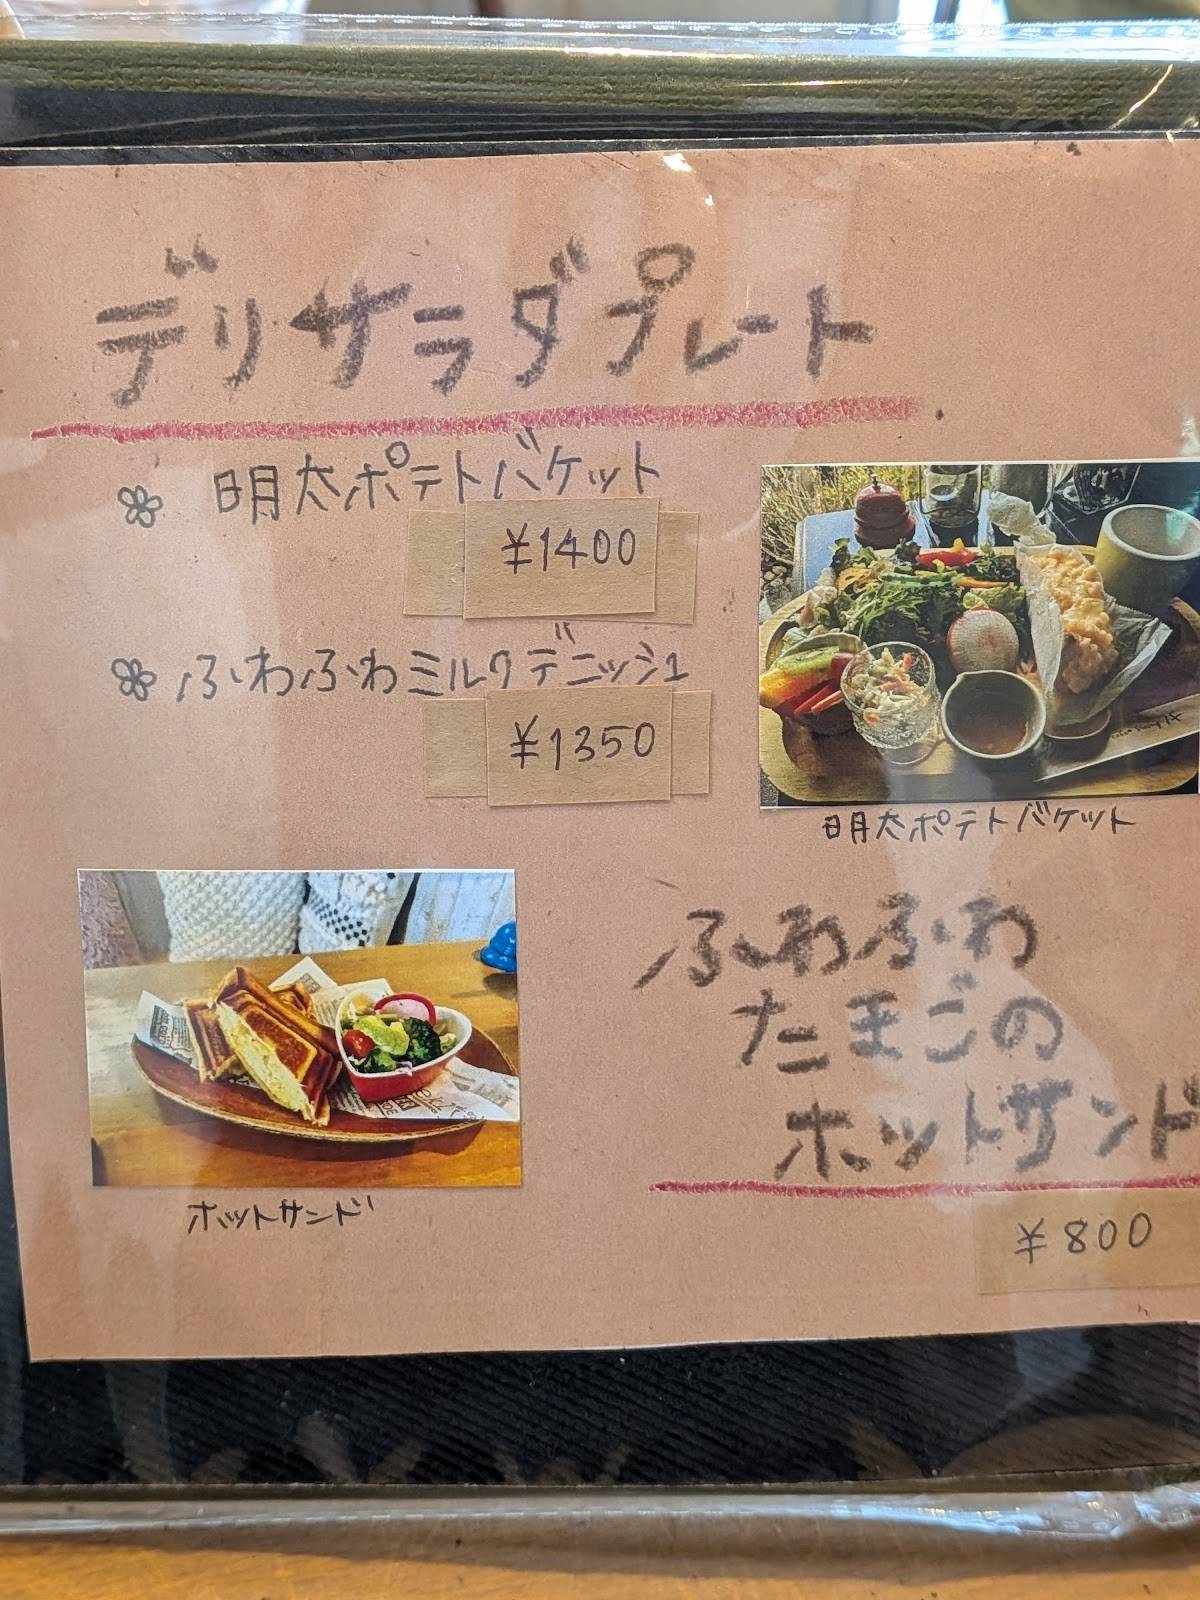 デリサラダプレート
明太ポテトバケット
¥1400
ふわふわミルクデニッシュ
¥1350
明太ポテトバケット
ふわふわ
たまごの
ホットサンド
ホットサンド
¥800